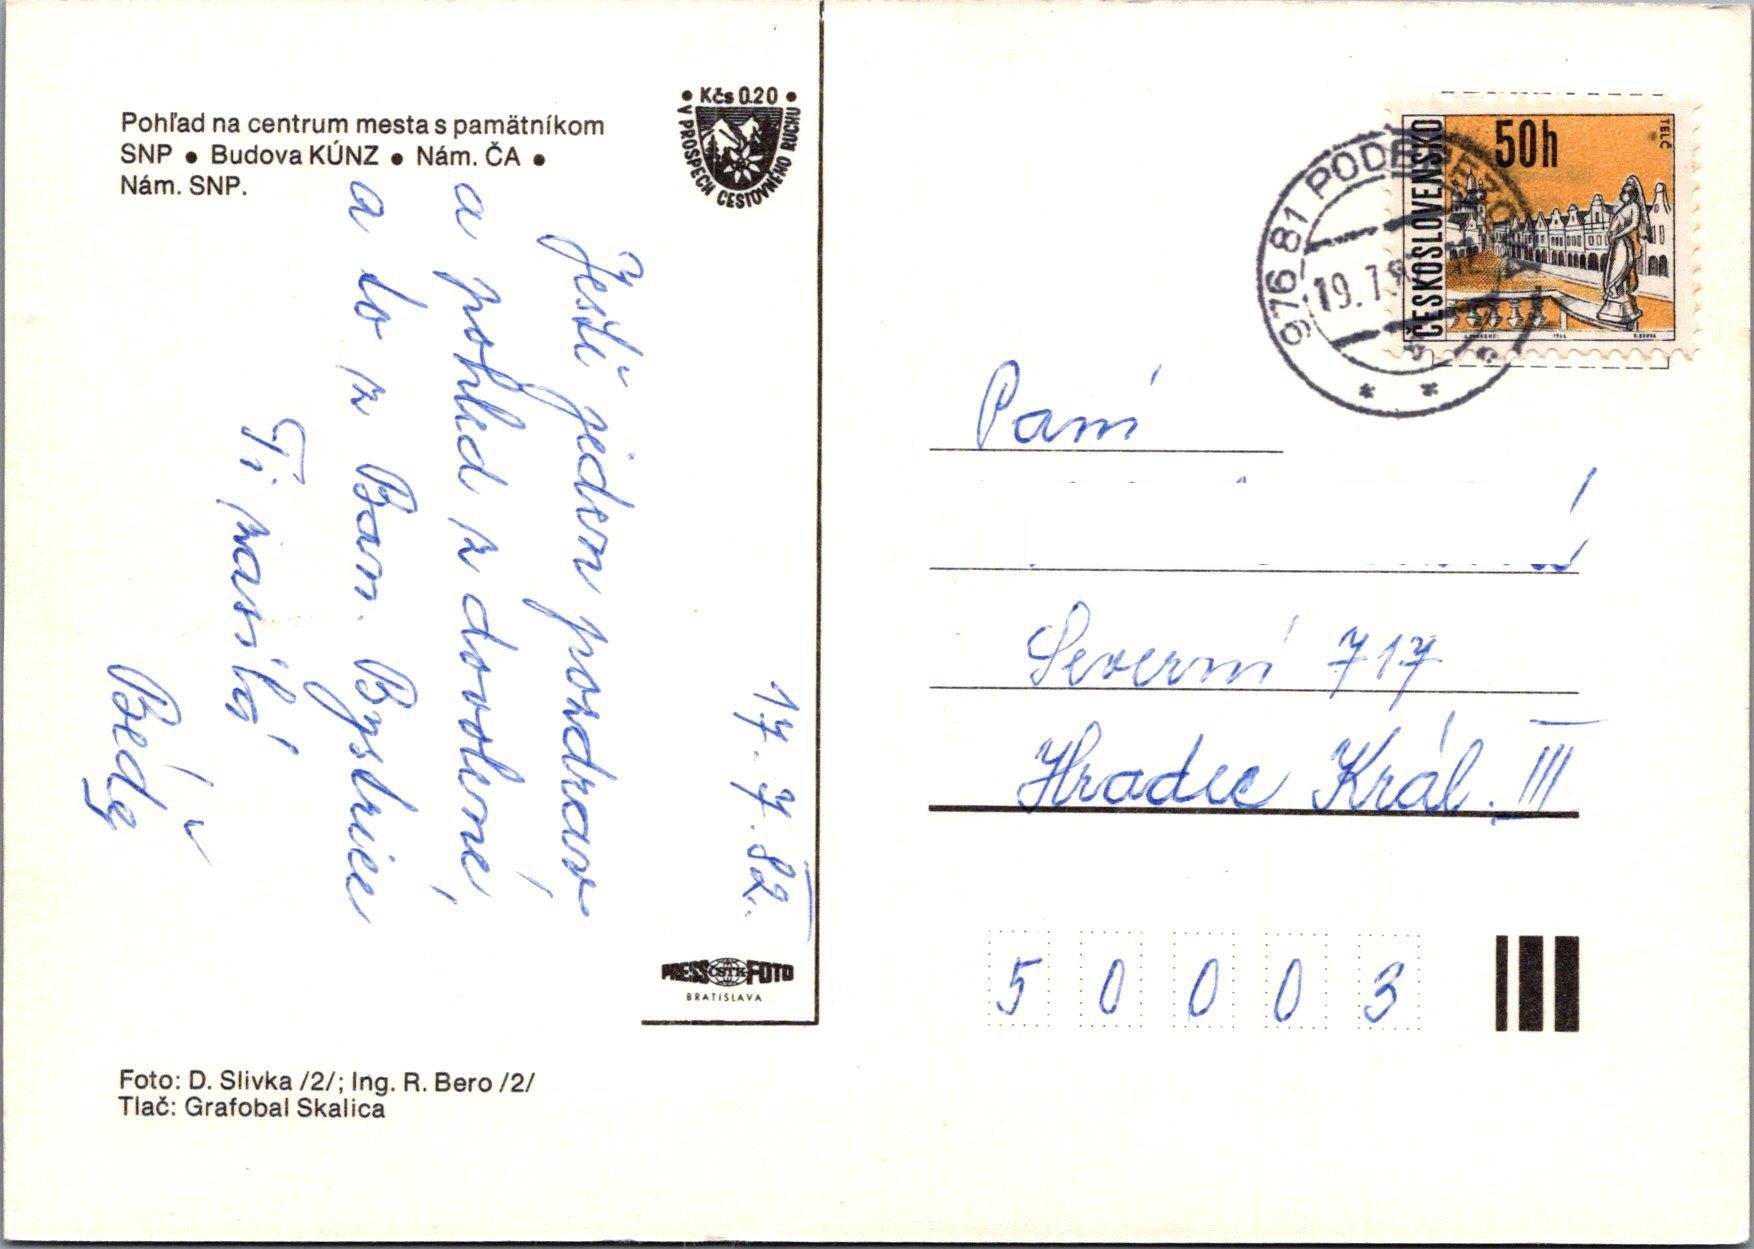 Pohľad na centrum mesta s pamätníkom
SNP • Budova KÚNZ • Nám. ČA •
Nám. SNP.
• Kčs 0.20 •
V PROSPECH CESTOVNÉHO RUCHU
17. 7. 82.
Ještě jeden pozdrav
a pohled z dovolené,
a to z Ban. Bystrice
Ti zasílá
PRESS ČSTK FOTO
BRATISLAVA
Foto: D. Slivka /2/; Ing. R. Bero /2/
Tlač: Grafobal Skalica
ČESKOSLOVENSKO
50h
TELČ
976 81 PODBREZOVÁ
19. 7.
Paní
Severní 717
Hradec Král. III
50003